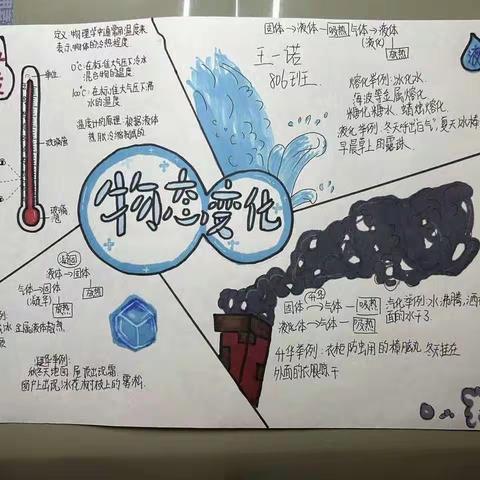 定义:物理学中通常用温度来
表示物体的冷热程度
0℃:在标准大气压下冰水
混合物的温度
100℃:在标准大气压下沸
水的温度
温度计的原理:根据液体
热胀冷缩制成的
单位
玻璃管
玻璃
泡
固体→液体 吸热 气体→液体
(液化)
放热
王一诺
806班
熔化举例:冰化水.
海波等金属熔化
糖化糖水.蜡烛熔化
液化举例:冬天呼出白气,夏天冰棒
早晨草上的露珠.
物态变化
凝固
液体→固体
气体→固体 放热
(凝华)
放热
金属液体
凝华举例:
秋冬天地面 屋顶出现霜
窗户上出现冰花 树枝上的雾凇.
升华
固体→气体 吸热
液体→气体 吸热
汽化举例:水沸腾,洒
面的水干了.
升华举例:衣柜防虫用的樟脑丸.冬天挂在
外面的衣服